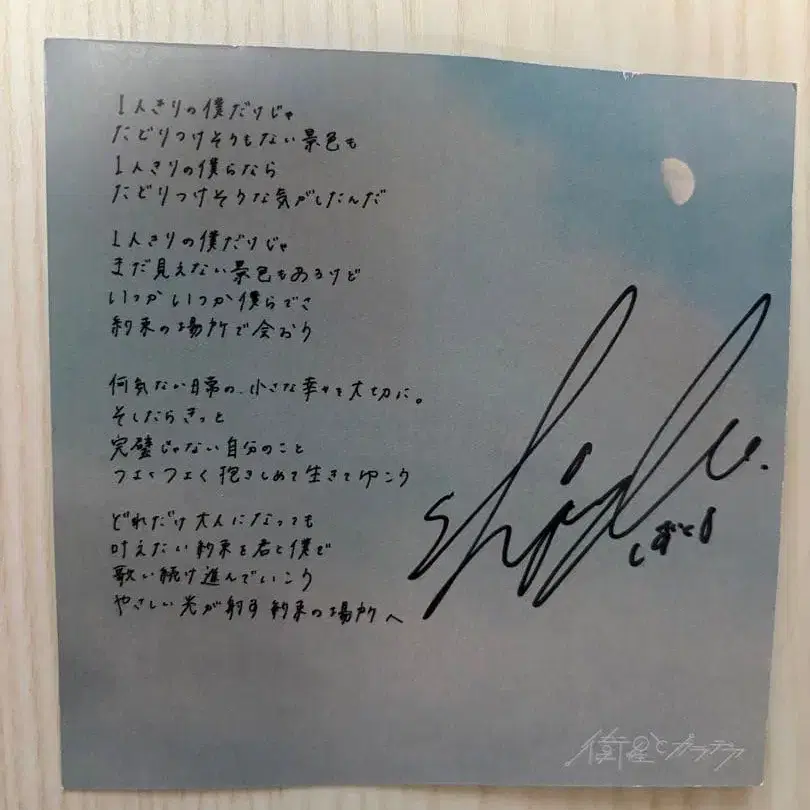 1人きりの僕だけじゃ
たどりつけそうもない景色も
1人きりの僕らなら
たどりつけそうな気がしたんだ
1人きりの僕だけじゃ
まだ見えない景色もあるけど
いつかいつか僕らでさ
約束の場所で会おう
何気ない日常の、小さな幸せを大切に。
そしたらきっと
完璧じゃない自分のこと
つよくつよく抱きしめて生きてゆこう
どれだけ大人になっても
叶えたい約束を君と僕で
歌い続け進んでいこう
やさしい光が射す約束の場所へ
しずく
衛星とカラテア